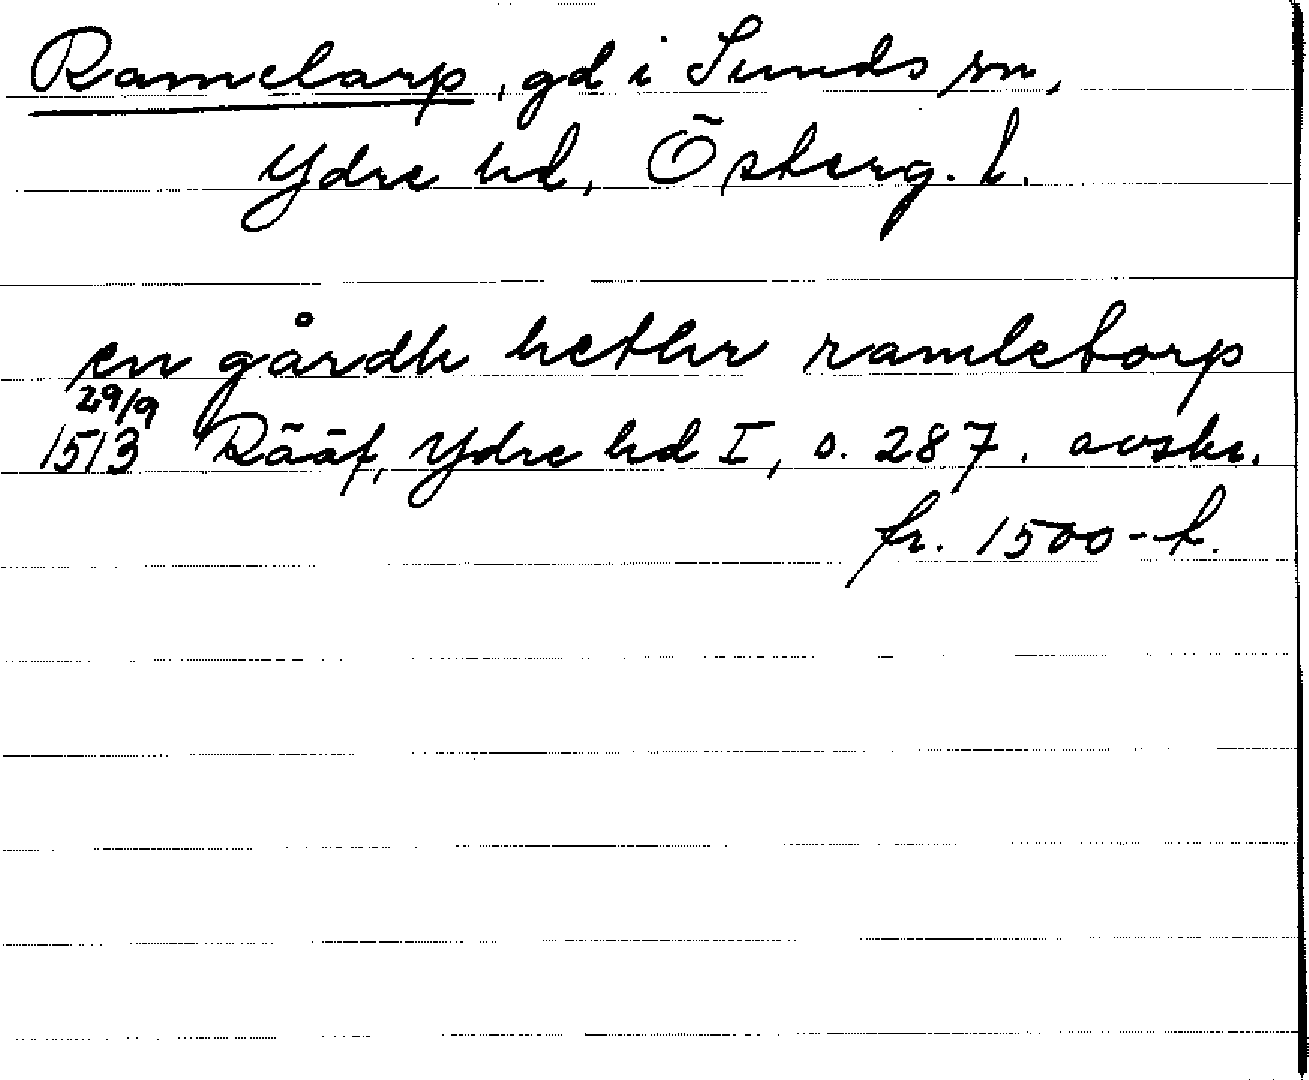 Ramelarp, gd i Sunds sn,
Ydre hd, Österg. l.
en gårdh hethr ramletorp
29/9
1513 Rääf, Ydre hd I, s. 287. avskr.
fr. 1500-t.